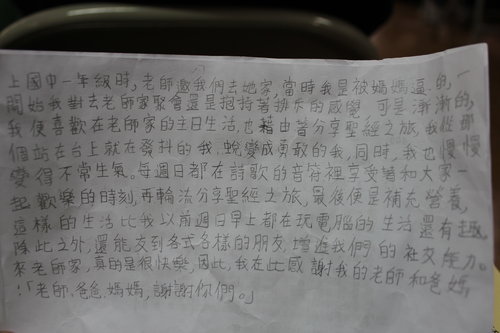 上國中一年級時,老師邀我們去她家,當時我是被媽媽逼的,一
開始我對去老師家聚會還是抱持著排斥的感覺,可是漸漸的,
我便喜歡在老師家的主日生活,也藉由著分享聖經之旅,我從那
個站在台上就在發抖的我,蛻變成勇敢的我,同時,我也慢慢
變得不常生氣。每週日都在詩歌的音符裡享受著和大家一
起歡樂的時刻,再輪流分享聖經之旅,最後便是補充營養,
這樣的生活比我以前週日早上都在玩電腦的生活還有趣,
除此之外,還能交到各式各樣的朋友,增進我們的社交能力。
來老師家,真的是很快樂,因此,我在此感謝我的老師和爸媽
:「老師、爸爸、媽媽,謝謝你們。」